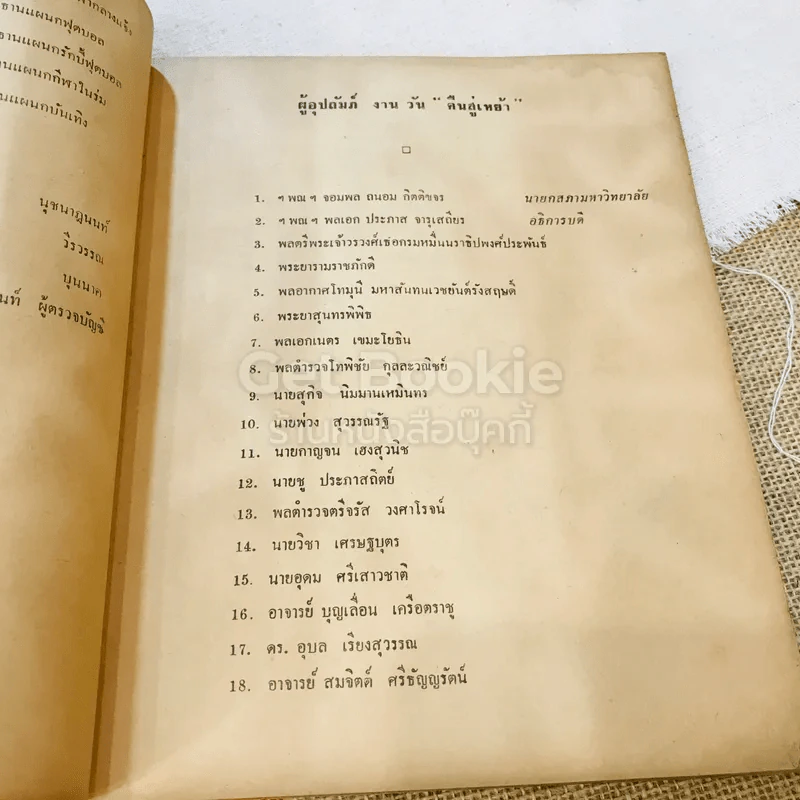 นแผนกฟุตบอล
านแผนกรักบี้ฟุตบอล
านแผนกกีฬาในร่ม
นแผนกบันเทิง
นุชนาฎนนท์
วีรวรรณ
บุนนาค
นท์ ผู้ตรวจบัญชี
ผู้อุปถัมภ์ งาน วัน "คืนสู่เหย้า"
1. ฯพณฯ จอมพล ถนอม กิตติขจร นายกสภามหาวิทยาลัย
2. ฯพณฯ พลเอก ประภาส จารุเสถียร อธิการบดี
3. พลตรีพระเจ้าวรวงศ์เธอกรมหมื่นนราธิปพงศ์ประพันธ์
4. พระยารามราชภักดี
5. พลอากาศโทมุนี มหาสันทนเวชยันต์รังสฤษดิ์
6. พระยาสุนทรพิพิธ
7. พลเอกเนตร เขมะโยธิน
8. พลตำรวจโทพิชัย กุลละวณิชย์
9. นายสุกิจ นิมมานเหมินทร
10. นายพ่วง สุวรรณรัฐ
11. นายกาญจน เฮงสุวนิช
12. นายชู ประภาสถิตย์
13. พลตำรวจตรีจรัส วงศาโรจน์
14. นายวิชา เศรษฐบุตร
15. นายอุดม ศรีเสาวชาติ
16. อาจารย์ บุญเลื่อน เครือตราชู
17. ดร. อุบล เรียงสุวรรณ
18. อาจารย์ สมจิตต์ ศรีธัญญรัตน์
Get Bookie
ร้านหนังสือบุ๊คกี้